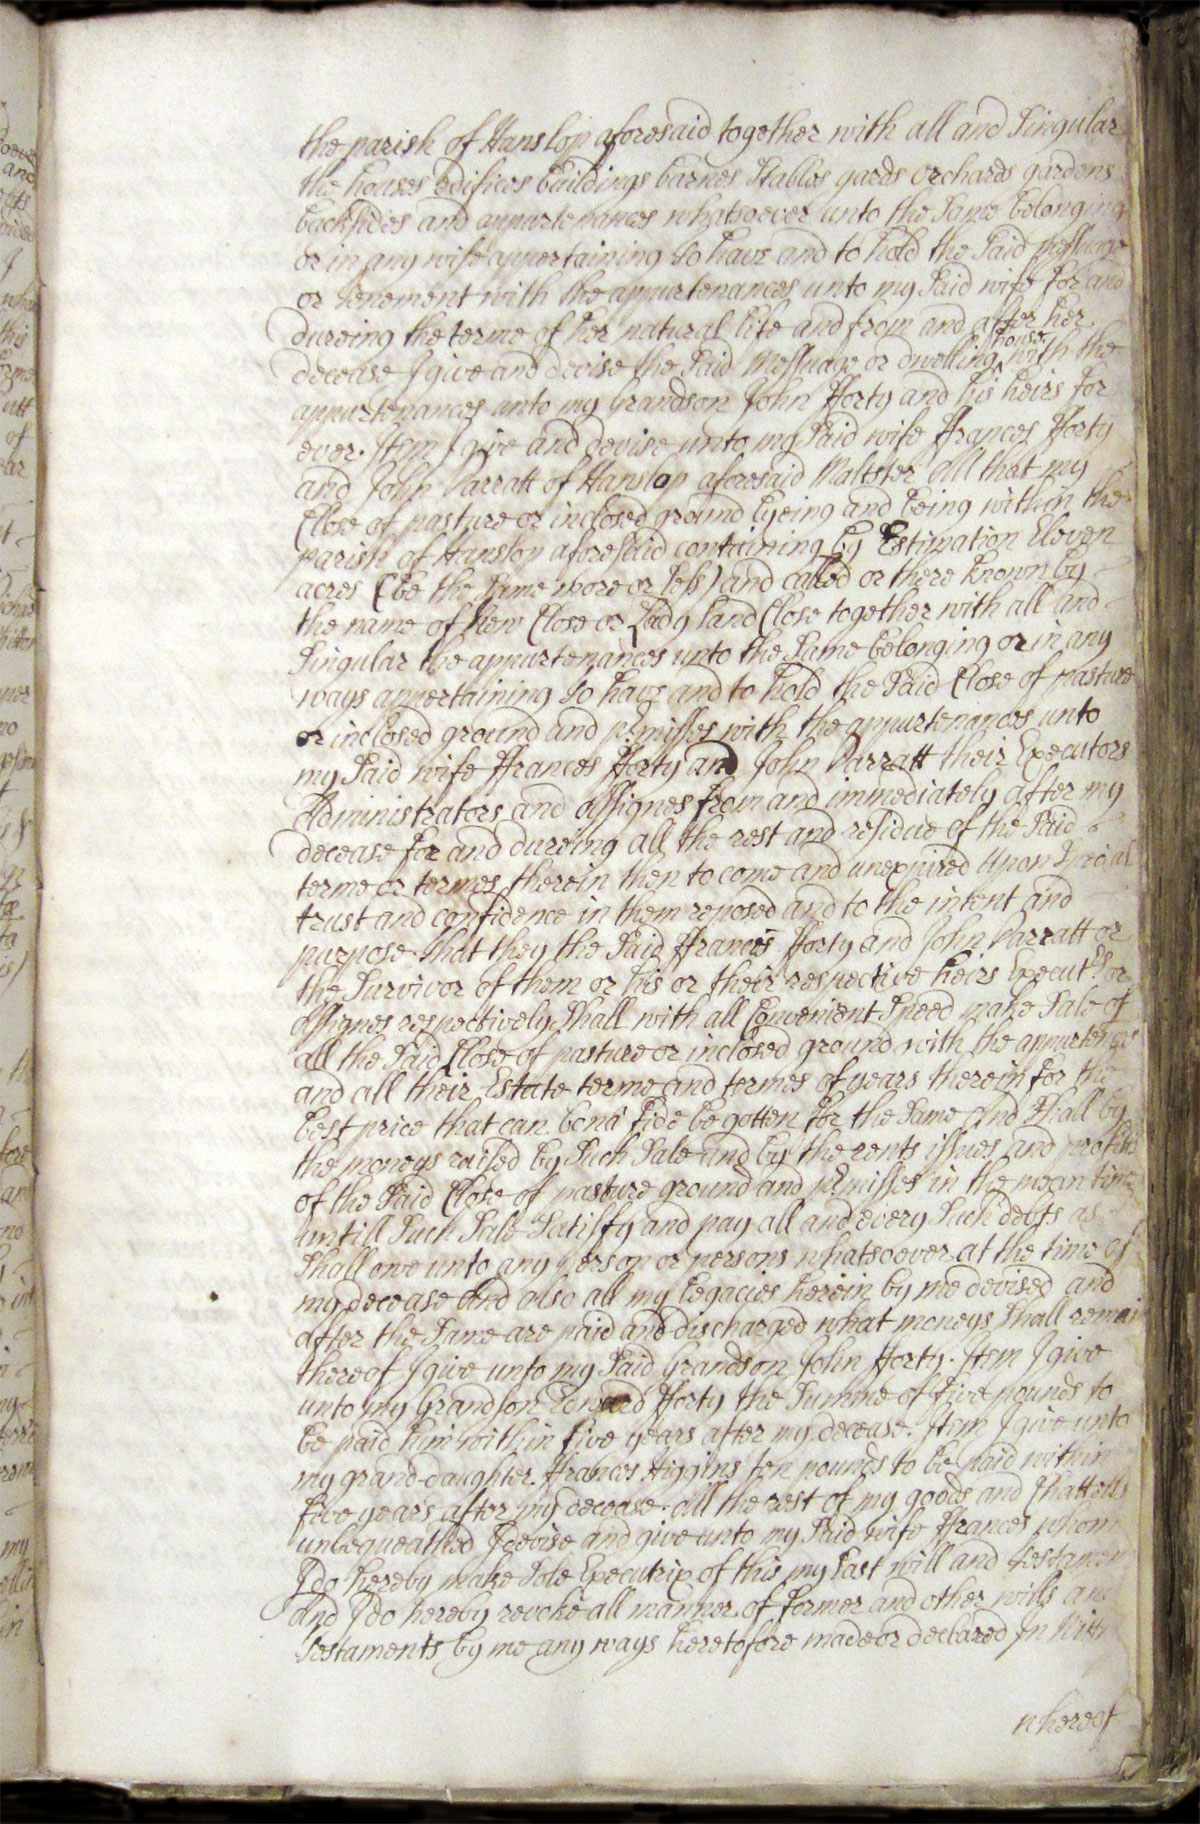 the parish of Hanslop aforesaid together with all and Singular
the houses edifices buildings barnes Stables yards orchards gardens
backsides and appurtenances whatsoever unto the Same belonging
or in any wise appertaining To have and to hold the Said Messuage
or Tenement with the appurtenances unto my Said wife for and
dureing the terme of her natural life and from and after her
decease I give and devise the Said Messuage or dwelling house with the
appurtenances unto my Grandson John Fforty and his heirs for
ever. Item I give and devise unto my Said wife Ffrances Fforty
and John Parratt of Hanslop aforesaid Maltster all that my
Close of pasture or inclosed ground lyeing and being within the
parish of Hanslop aforesaid containing by Estimation Eleven
acres (be the Same more or less) and called or there known by
the name of New Close or Lady Land Close together with all and
Singular the appurtenances unto the Same belonging or in any
ways appertaining To have and to hold the Said Close of pasture
or inclosed ground and p'misses with the appurtenances unto
my Said wife Ffrances Fforty and John Parratt their Executors
Administrators and assignes from and immediately after my
decease for and dureing all the rest and residue of the Said
terme or termes therein then to come and unexpired Upon Special
trust and confidence in them reposed and to the intent and
purpose that they the Said Ffrances Fforty and John Parratt or
the Survivor of them or his or their respective heirs Execut'rs or
assignes respectively Shall with all Convenient Speed make Sale of
all the Said Close of pasture or inclosed ground with the appurten'ces
and all their Estate terme and termes of years therein for the
best price that can bona fide be gotten for the Same and Shall by
the moneys raised by Such Sale and by the rents issues and profitts
of the Said Close of pasture ground and p'misses in the mean time
untill Such Sale Satisfy and pay all and every Such debts as I
Shall owe unto any person or persons whatsoever at the time of
my decease And also all my Legacies herein by me devised and
after the Same are paid and discharged what moneys Shall remain
thereof I give unto my Said Grandson John Fforty. Item I give
unto my Grandson Edward Fforty the Summe of five pounds to
be paid him within five years after my decease. Item I give unto
my grand-daughter Ffrances Higgins ten pounds to be paid within
five years after my decease. all the rest of my goods and Chattells
unbequeathed I devise and give unto my Said wife Ffrances whom
I do hereby make Sole Executrix of this my Last will and Testament
And I do hereby revoke all manner of former and other wills and
Testaments by me any ways heretofore made or declared In Witn
whereof